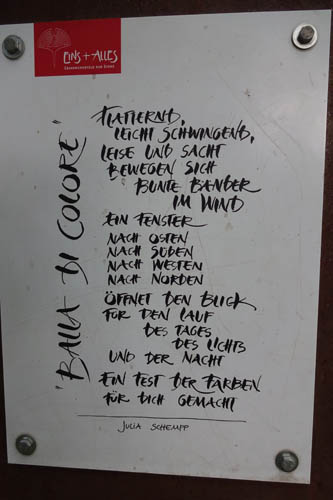 EINS+ALLES
ERFAHRUNGSFELD DER SINNE
"BALLA DI COLORE"
FLATTERND,
LEICHT SCHWINGEND,
LEISE UND SACHT
BEWEGEN SICH
BUNTE BÄNDER
IM WIND
EIN FENSTER
NACH OSTEN
NACH SÜDEN
NACH WESTEN
NACH NORDEN
ÖFFNET DEN BLICK
FÜR DEN LAUF
DES TAGES
DES LICHTS
UND DER NACHT
EIN FEST DER FARBEN
FÜR DICH GEMACHT
JULIA SCHEMPP